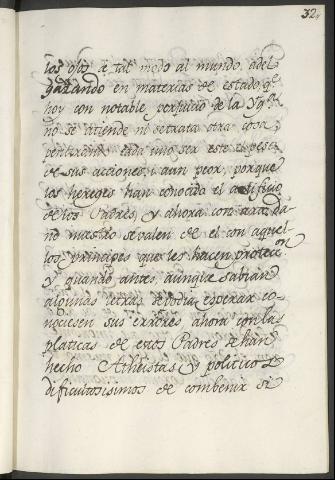 32,,
los ojos à tal modo al mundo, adel
gazando en materias de estado, q.e
hoy con notable perjuicio de la Yg.a
no se atiende ni se trata otra cosa,
cada uno ser este el
de sus acciones, i aun peor, porque
los hereges han conocido el artificio
de los Padres, y ahora con da
ño nuestro se valen de el con aquel
los principes que les hacen protec.on
y quando antes, aunque sabian
algunas letras, se podia esperar co
nociesen sus errores, ahora con las
platicas de estos Padres se han
hecho Atheistas, y politicos
dificultosisimos de combenir si